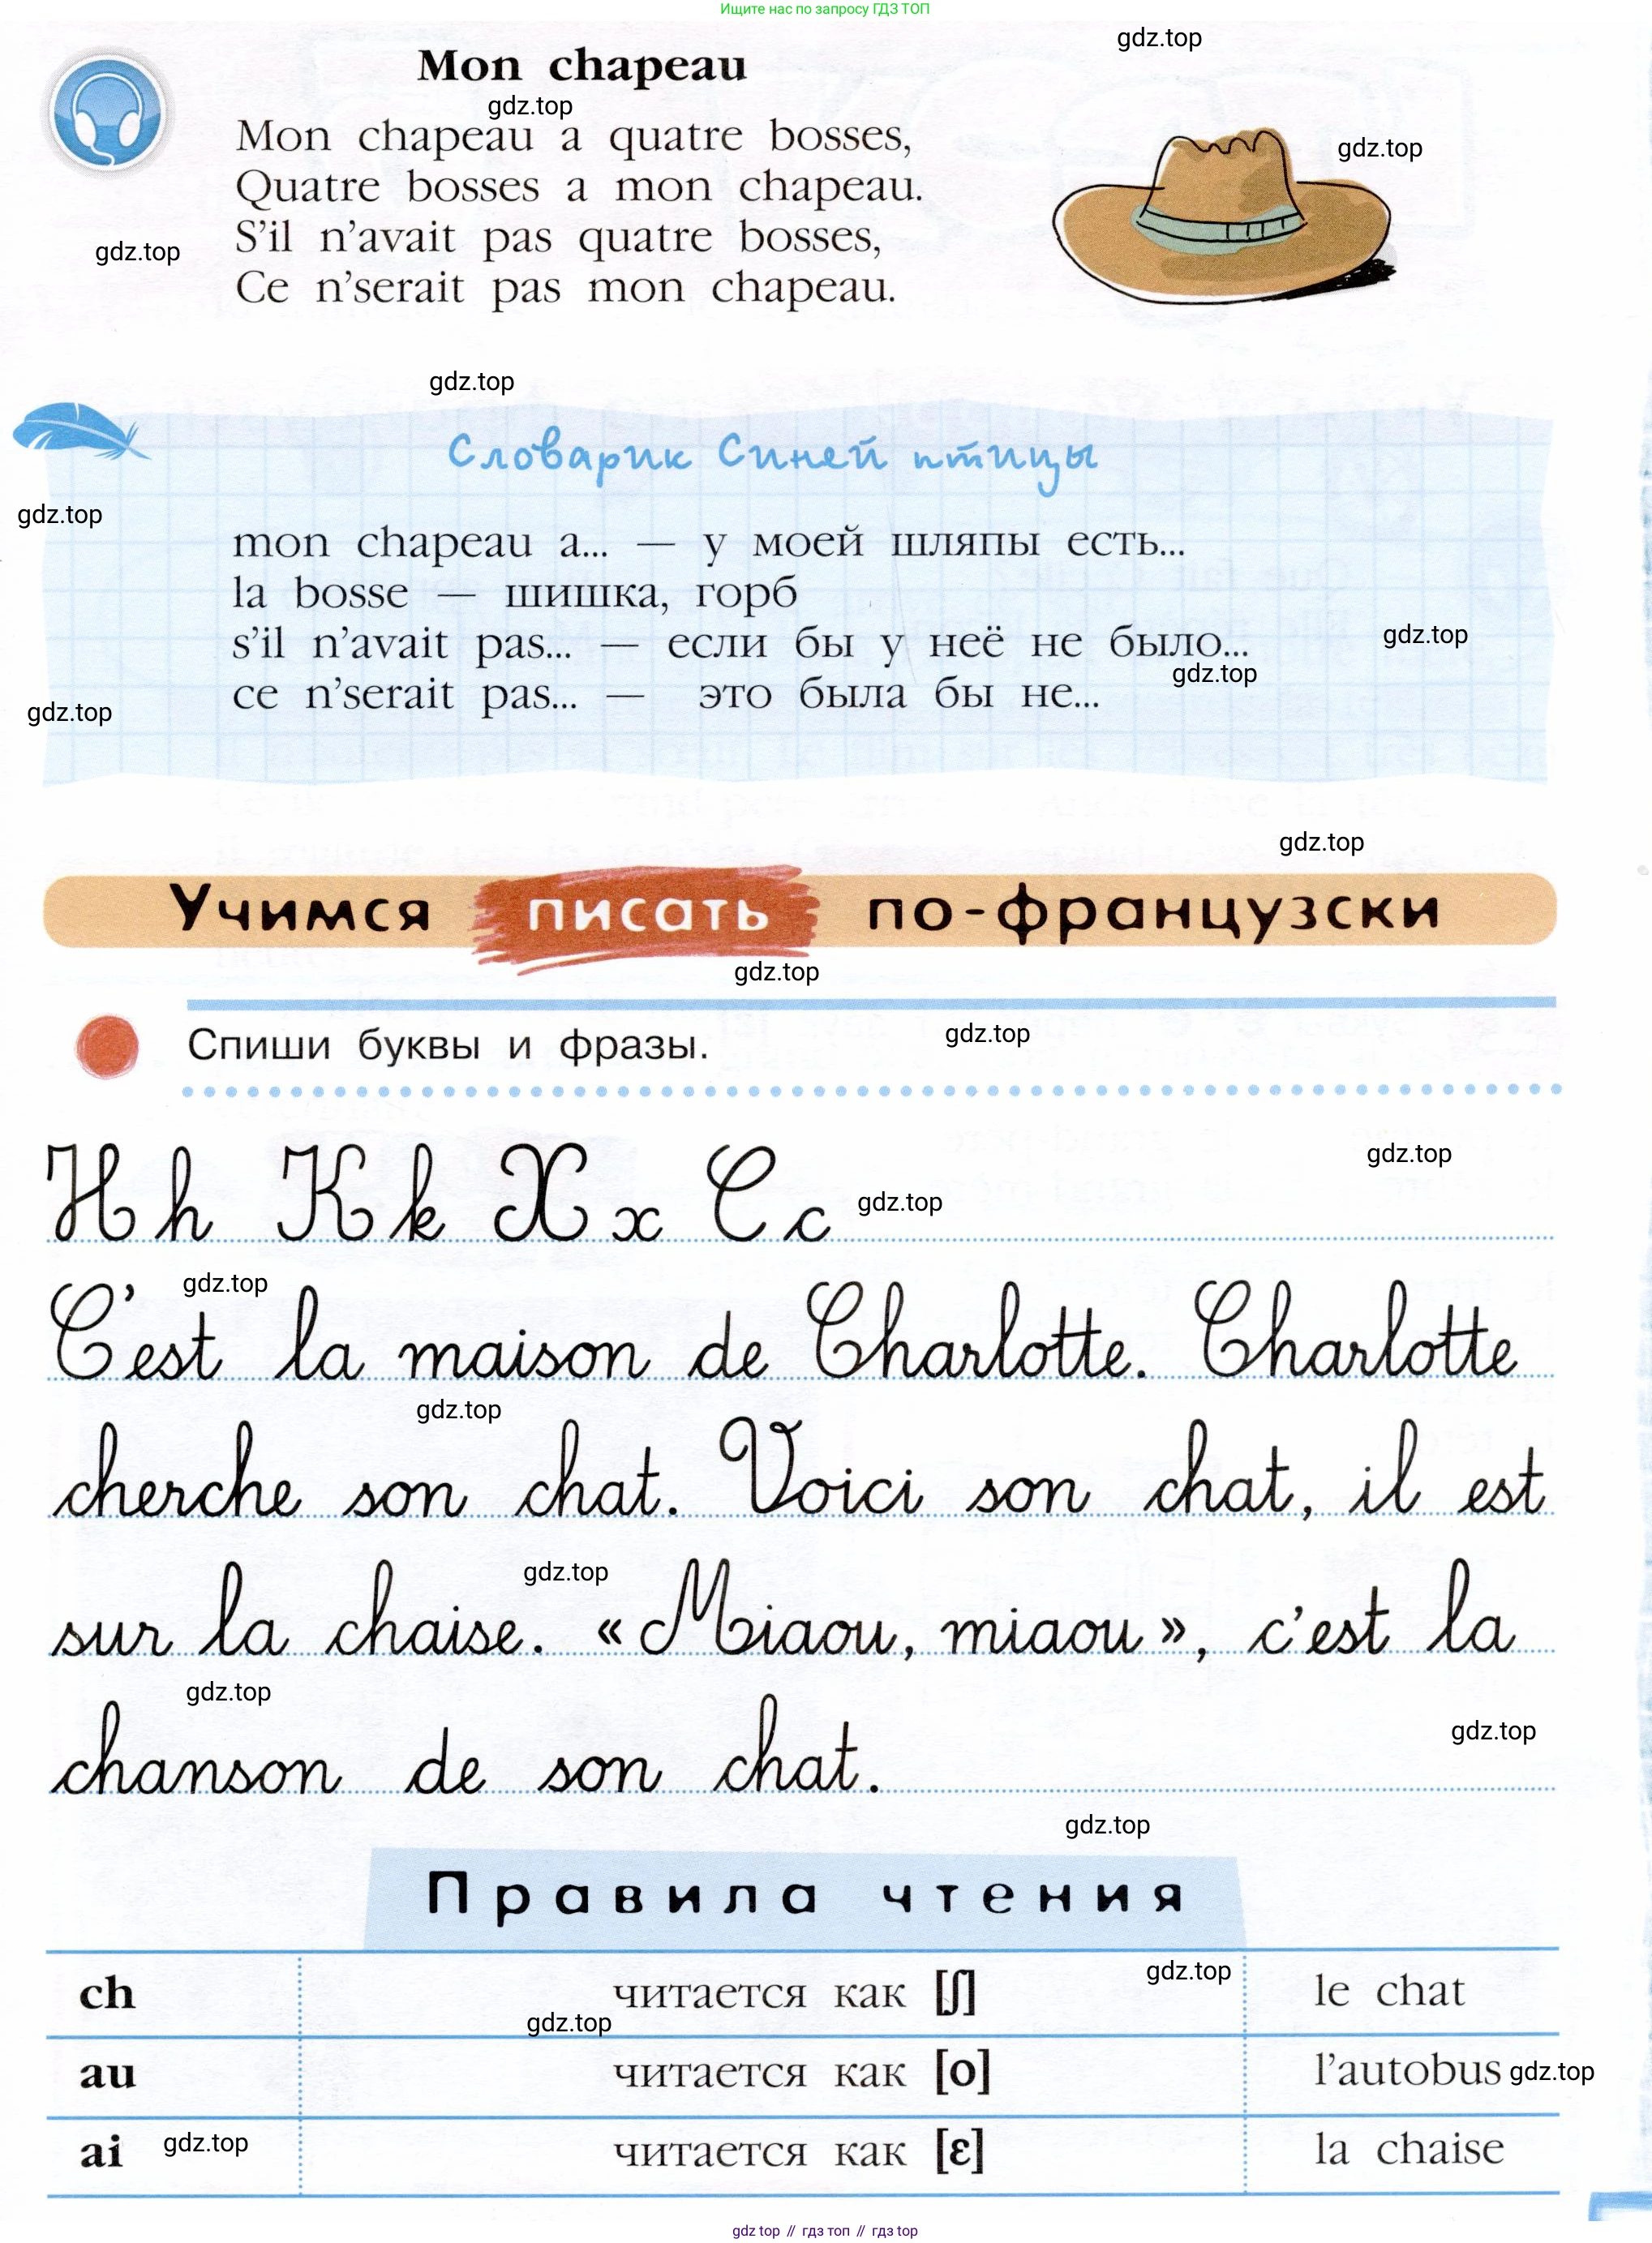 Ищите нас по запросу ГДЗ ТОП
gdz.top
Mon chapeau
gdz.top
Mon chapeau a quatre bosses,
gdz.top
Quatre bosses a mon chapeau.
S'il n'avait pas quatre bosses,
gdz.top
Ce n'serait pas mon chapeau.
gdz.top
Словарик Синей птицы
gdz.top
mon chapeau a... — у моей шляпы есть...
la bosse — шишка, горб
s'il n'avait pas... — если бы у неё не было...
gdz.top
gdz.top
ce n'serait pas... — это была бы не...
gdz.top
gdz.top
Учимся писать по-французски
gdz.top
Спиши буквы и фразы.
gdz.top
gdz.top
H h K k X x C c
gdz.top
gdz.top
C'est la maison de Charlotte. Charlotte
gdz.top
cherche son chat. Voici son chat, il est
gdz.top
sur la chaise. « Miaou, miaou », c'est la
gdz.top
gdz.top
chanson de son chat.
gdz.top
Правила чтения
ch читается как [ʃ] le chat
gdz.top
gdz.top
au читается как [o] l'autobus
gdz.top
ai читается как [ɛ] la chaise
gdz.top
gdz top // гдз топ // гдз top